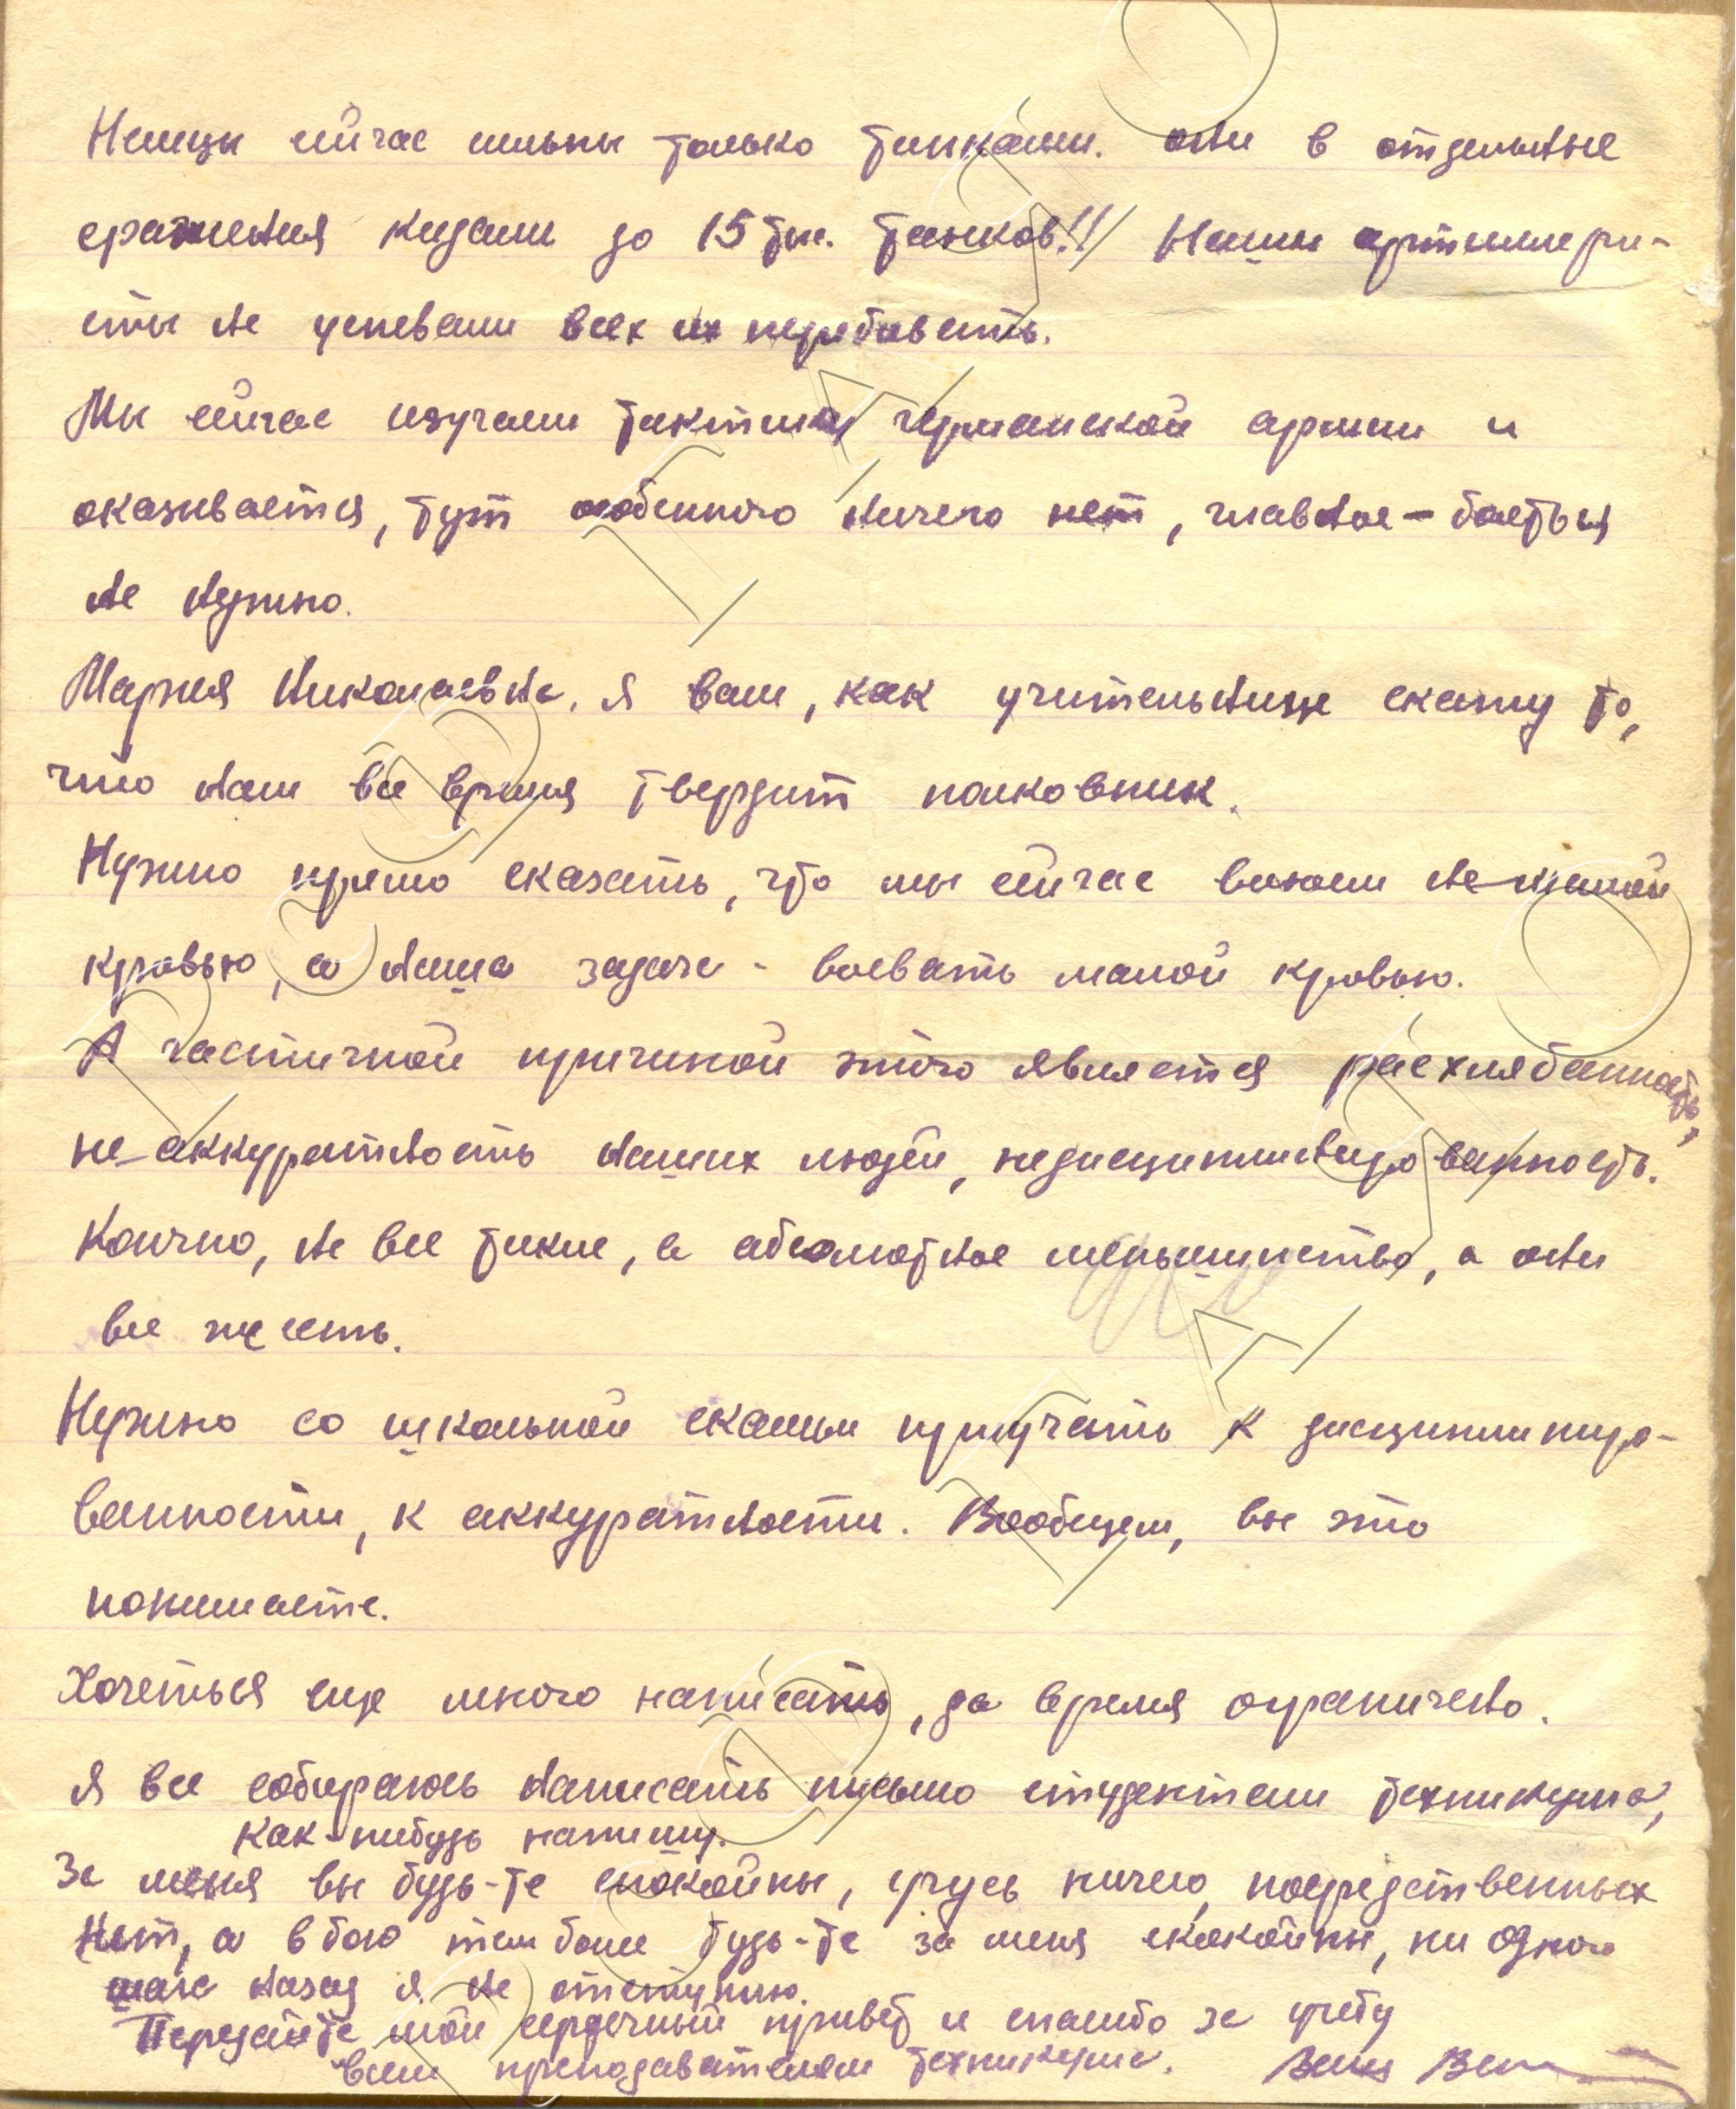 Немцы сейчас сильны только танками. они в отдельные
сражения кидали до 15 тыс. танков!! Наши артиллери-
сты не успевали всех их перебивать.
Мы сейчас изучаем тактику германской армии и
оказывается, тут особенного ничего нет, главное - бояться
не нужно.
Мария Николаевна. Я вам, как учительнице скажу то,
что нам все время твердит полковник.
Нужно прямо сказать, что мы сейчас воюем не малой
кровью, а наша задача - воевать малой кровью.
А частичной причиной этого является расхлябанность,
не-аккуратность наших людей, недисциплинированность.
Конечно, не все такие, а абсолютное меньшинство, а они
все же есть.
Нужно со школьной скамьи приучать к дисциплиниро-
ванности, к аккуратности. Вообщем, вы это
понимаете.
Хочеться еще много написать, да время ограничено.
Я все собираюсь написать письмо студентам техникума,
как-нибудь напишу.
За меня вы будь-те спокойны, учусь ничего, посредственных
нет, а в бою тем более будь-те за меня спокойны, ни одного
шага назад я не отступлю.
Передайте мой сердечный привет и спасибо за учебу
всем преподавателям техникума. Ваш